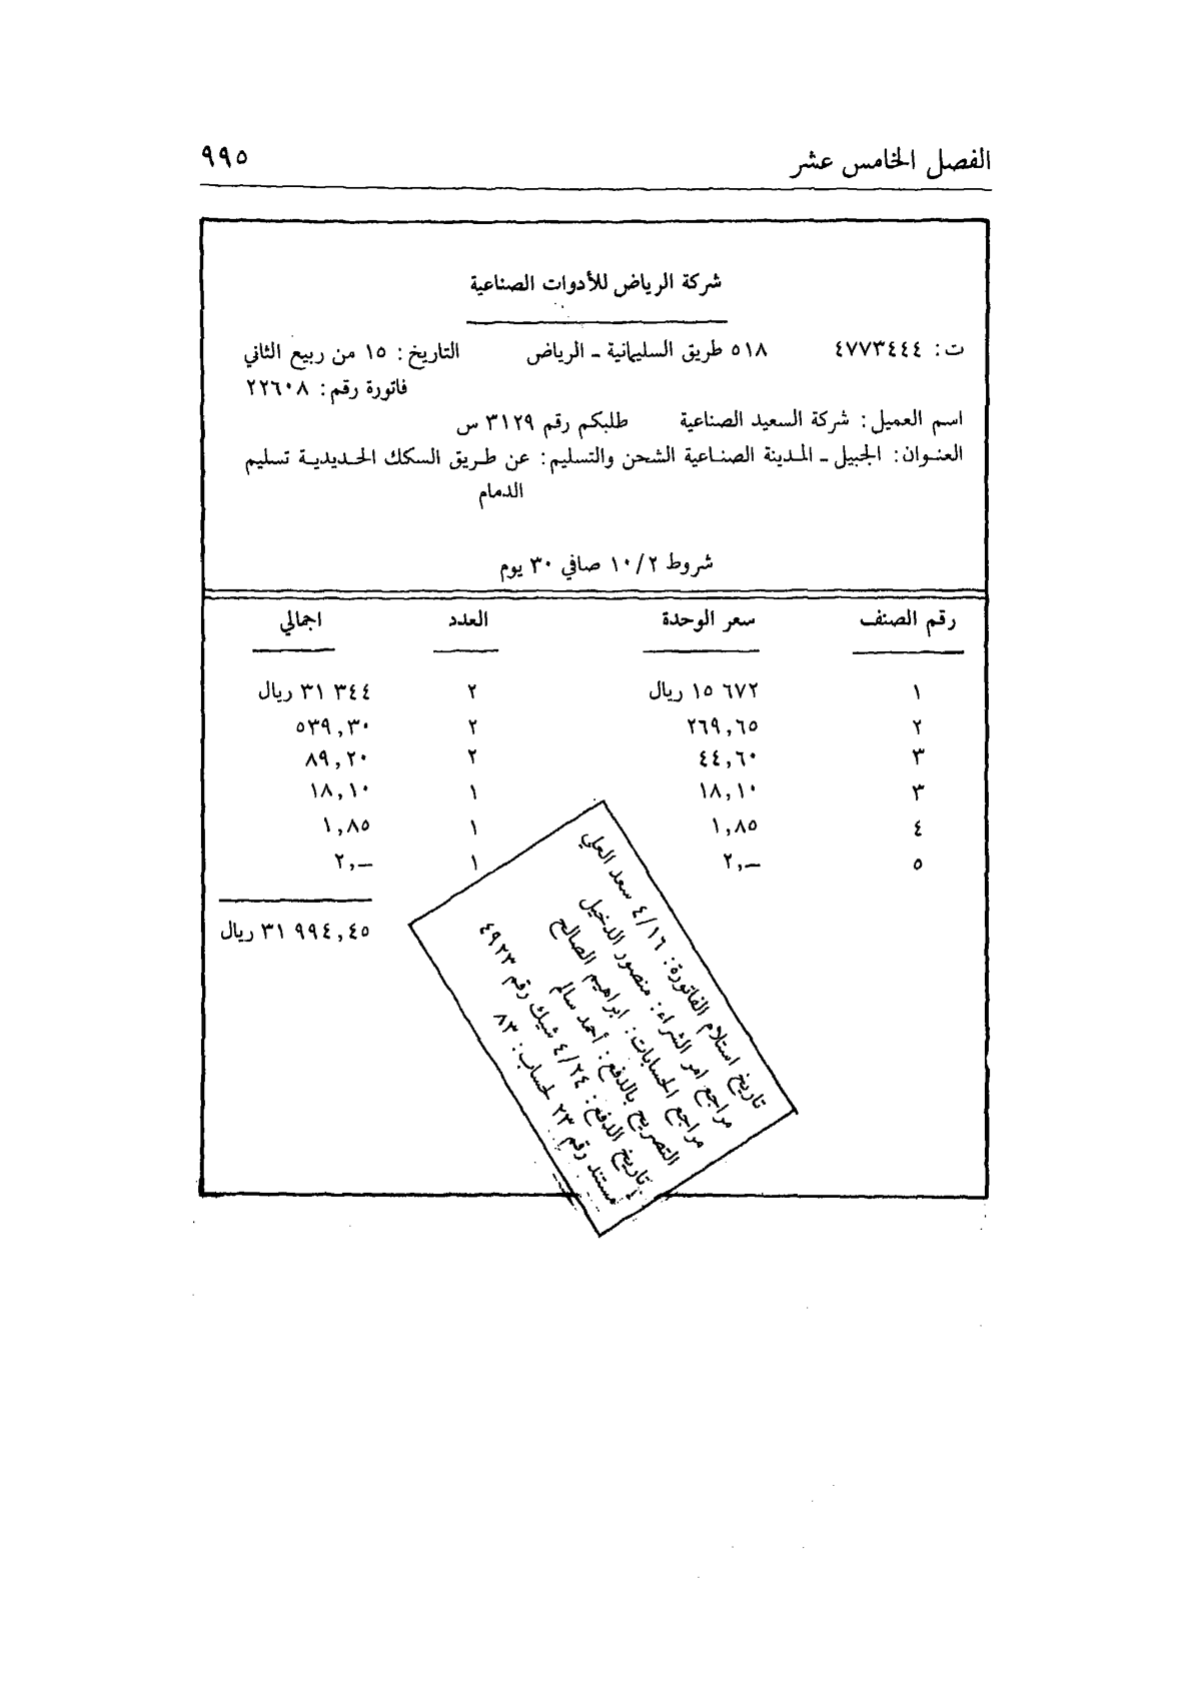 الفصل الخامس عشر ٩٩٥
شركة الرياض للأدوات الصناعية
ت: ٤٧٧٣٤٤٤ ٥١٨ طريق السليمانية - الرياض التاريخ: ١٥ من ربيع الثاني
فاتورة رقم: ٢٢٦٠٨
اسم العميل: شركة السعيد الصناعية طلبكم رقم ٣١٢٩ س
العنوان: الجبيل - المدينة الصناعية الشحن والتسليم: عن طريق السكك الحديدية تسليم
الدمام
شروط ١٠/٢ صافي ٣٠ يوم
رقم الصنف سعر الوحدة العدد اجمالي
١ ١٥ ٦٧٢ ريال ٢ ٣١ ٣٤٤ ريال
٢ ٢٦٩,٦٥ ٢ ٥٣٩,٣٠
٣ ٤٤,٦٠ ٢ ٨٩,٢٠
٣ ١٨,١٠ ١ ١٨,١٠
٤ ١,٨٥ ١ ١,٨٥
٥ ٢,— ١ ٢,—
٣١ ٩٩٤,٤٥ ريال
تاريخ استلام الفاتورة: ٤/١٦ سعد العلي
مراجع امر الشراء: منصور الدخيل
مراجع الحسابات: ابراهيم الصالح
التصريح بالدفع: أحمد سالم
تاريخ الدفع: ٤/٢٤ شيك رقم ٤٩٢٣
مستند رقم ٢٣ لحساب: ٨٣